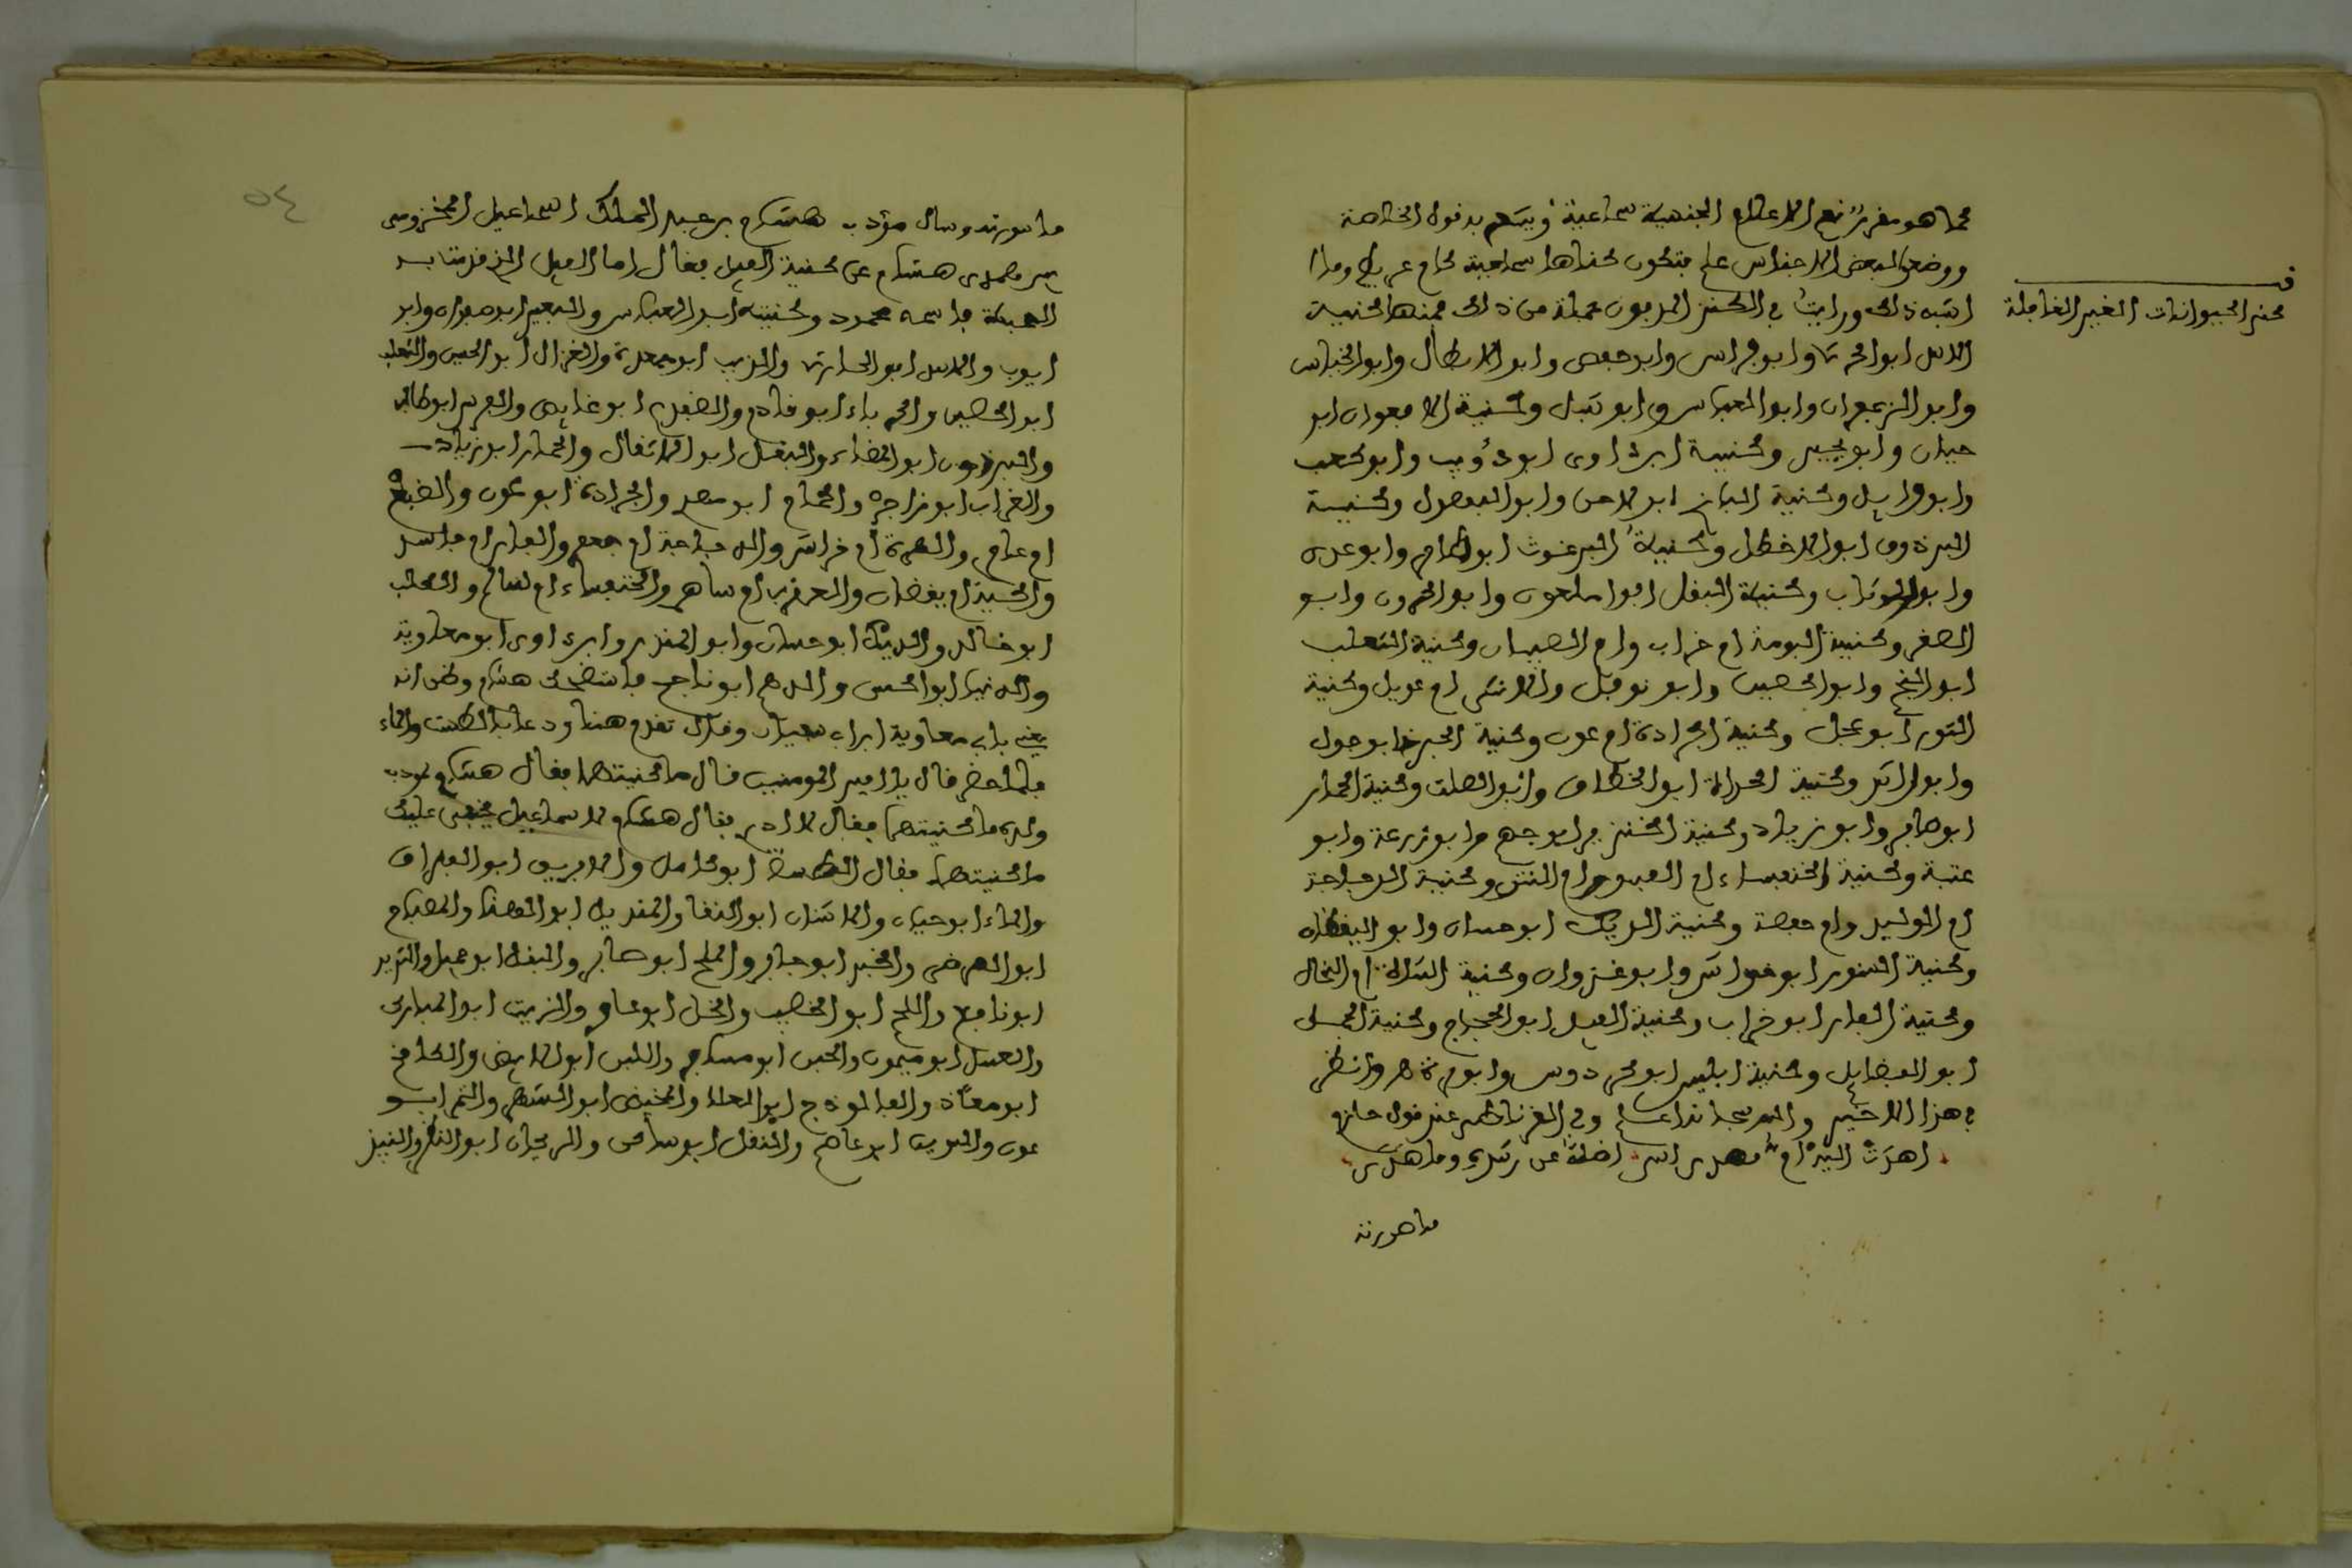 كما هو مقرر نعم الاعلام الجنسية سماعية ويشعر به قول الخلاصة
ووضعوا لبعض الاجناس علم فتكون كناها سماعية كام عريط وما
اشبه ذلك ورايت في الكنز المدفون جملة من ذلك فمنها كنية
الاسد ابو الحرث وابو فراس وابو حفص وابو الابطال وابو
وابو الزعفران وابو العباس وابو شبل وكنية الافعوان ابو
حيان وابو يحيى وكنية ابن اوى ابو ذؤيب وابو كعب
وابو وايل وكنية الباز ابو لاحق وابو وكنية
البرذون ابو الاخطل وكنية البرغوث ابو طامر وابو عدى
وابو الوثاب وكنية البغل ابو وابو الحرون وابو
الصقر وكنية البومة ام خراب وام الصبيان وكنية الثعلب
ابو النجم وابو الحصين وابو نوفل والانثى ام عويل وكنية
الثور ابو عجل وكنية الجرادة ام عوف وكنية ابو جوال
وابو راشد وكنية الحداة ابو الخطاف وابو الصلت وكنية الحمار
ابو صابر وابو زياد وكنية الخنزير ابو جهم وابو زرعة وابو
عتبة وكنية الخنفساء ام الفسو وام النتن وكنية الدجاجة
ام الوليد وام حفصة وكنية الديك ابو حسان وابو اليقظان
وكنية السنور ابو خداش وابو غزوان وكنية الشاة ام
وكنية الفار ابو خراب وكنية الفيل ابو الحجاج وكنية
ابو الفضايل وكنية ابليس ابو كردوس وابو مرة هـ وانظر
في هذا الاخير والله سبحانه اعلم وفي الغرناطى عند قول حازم
اهدت اليه ام مهدى اسى اضله عن رشده وما هدى
ما صورته
ف
كنى الحيوانات الغير العاقلة
٥٤
ما صورته وسال مؤدب هشام بن عبد الملك اسماعيل المخزومى
بين يدى هشام عن كنية الفيل فقال اما الفيل الذي
الحبشة فاسمه محمود وكنيته ابو العباس والبعير ابو صفوان وابو
ايوب والاسد ابو الحارث والذيب ابو جعدة والغزال ابو الحسن والثعلب
ابو الحصين والحرباء ابو قادم والضفدع ابو والقرد ابو
والبرذون ابو المضاء والبغل ابو الاثقال والحمار ابو زياد
والغراب ابو زاجر والحمام ابو والجرادة ابو عوف والضبع
ام عامر والهرة ام خراش والدجاجة ام جعفر والفار ام فاسد
والحية ام يقضان والعقرب ام ساهر والخنفساء ام سالم والكلب
ابو خالد والديك ابو حسان وابو المنذر وابن اوى ابو معاوية
والدنيا ابو الحسن والدرهم ابو ناجح فاستضحك هشام وظن انه
يعنى بابى معاوية وقال تقدم هنا ودعا بالطست والماء
فلما حضر قال يا امير المومنين قال ما كنيتهما فقال هشام لمودب
ولده ما كنيتهما فقال لا ادرى فقال هشام لاسماعيل بحقى عليك
ما كنيتهما فقال الطست ابو كامل والابريق ابو
والماء ابو حيان والاشنان ابو النقا والمنديل ابو والطعام
ابو والخبز ابو جابر والملح ابو صابر والبقل ابو جميل والثريد
ابو نافع واللحم ابو الخصيب والخل ابو عامر والزيت ابو المبارك
والعسل ابو ميمون والجبن ابو مسافر واللبن ابو الابيض والكامخ
ابو معاذ والفالوذج ابو العلا والخبيص ابو والتمر ابو
عون والسويق ابو عاصم والنقل ابو سامى والريحان ابو النضر والنبيذ